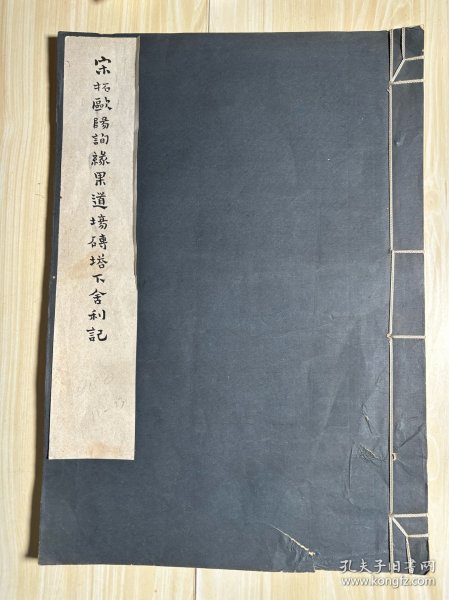 宋拓歐陽詢緣果道場磚塔下舍利記
孔夫子旧书网
www.kongfz.com